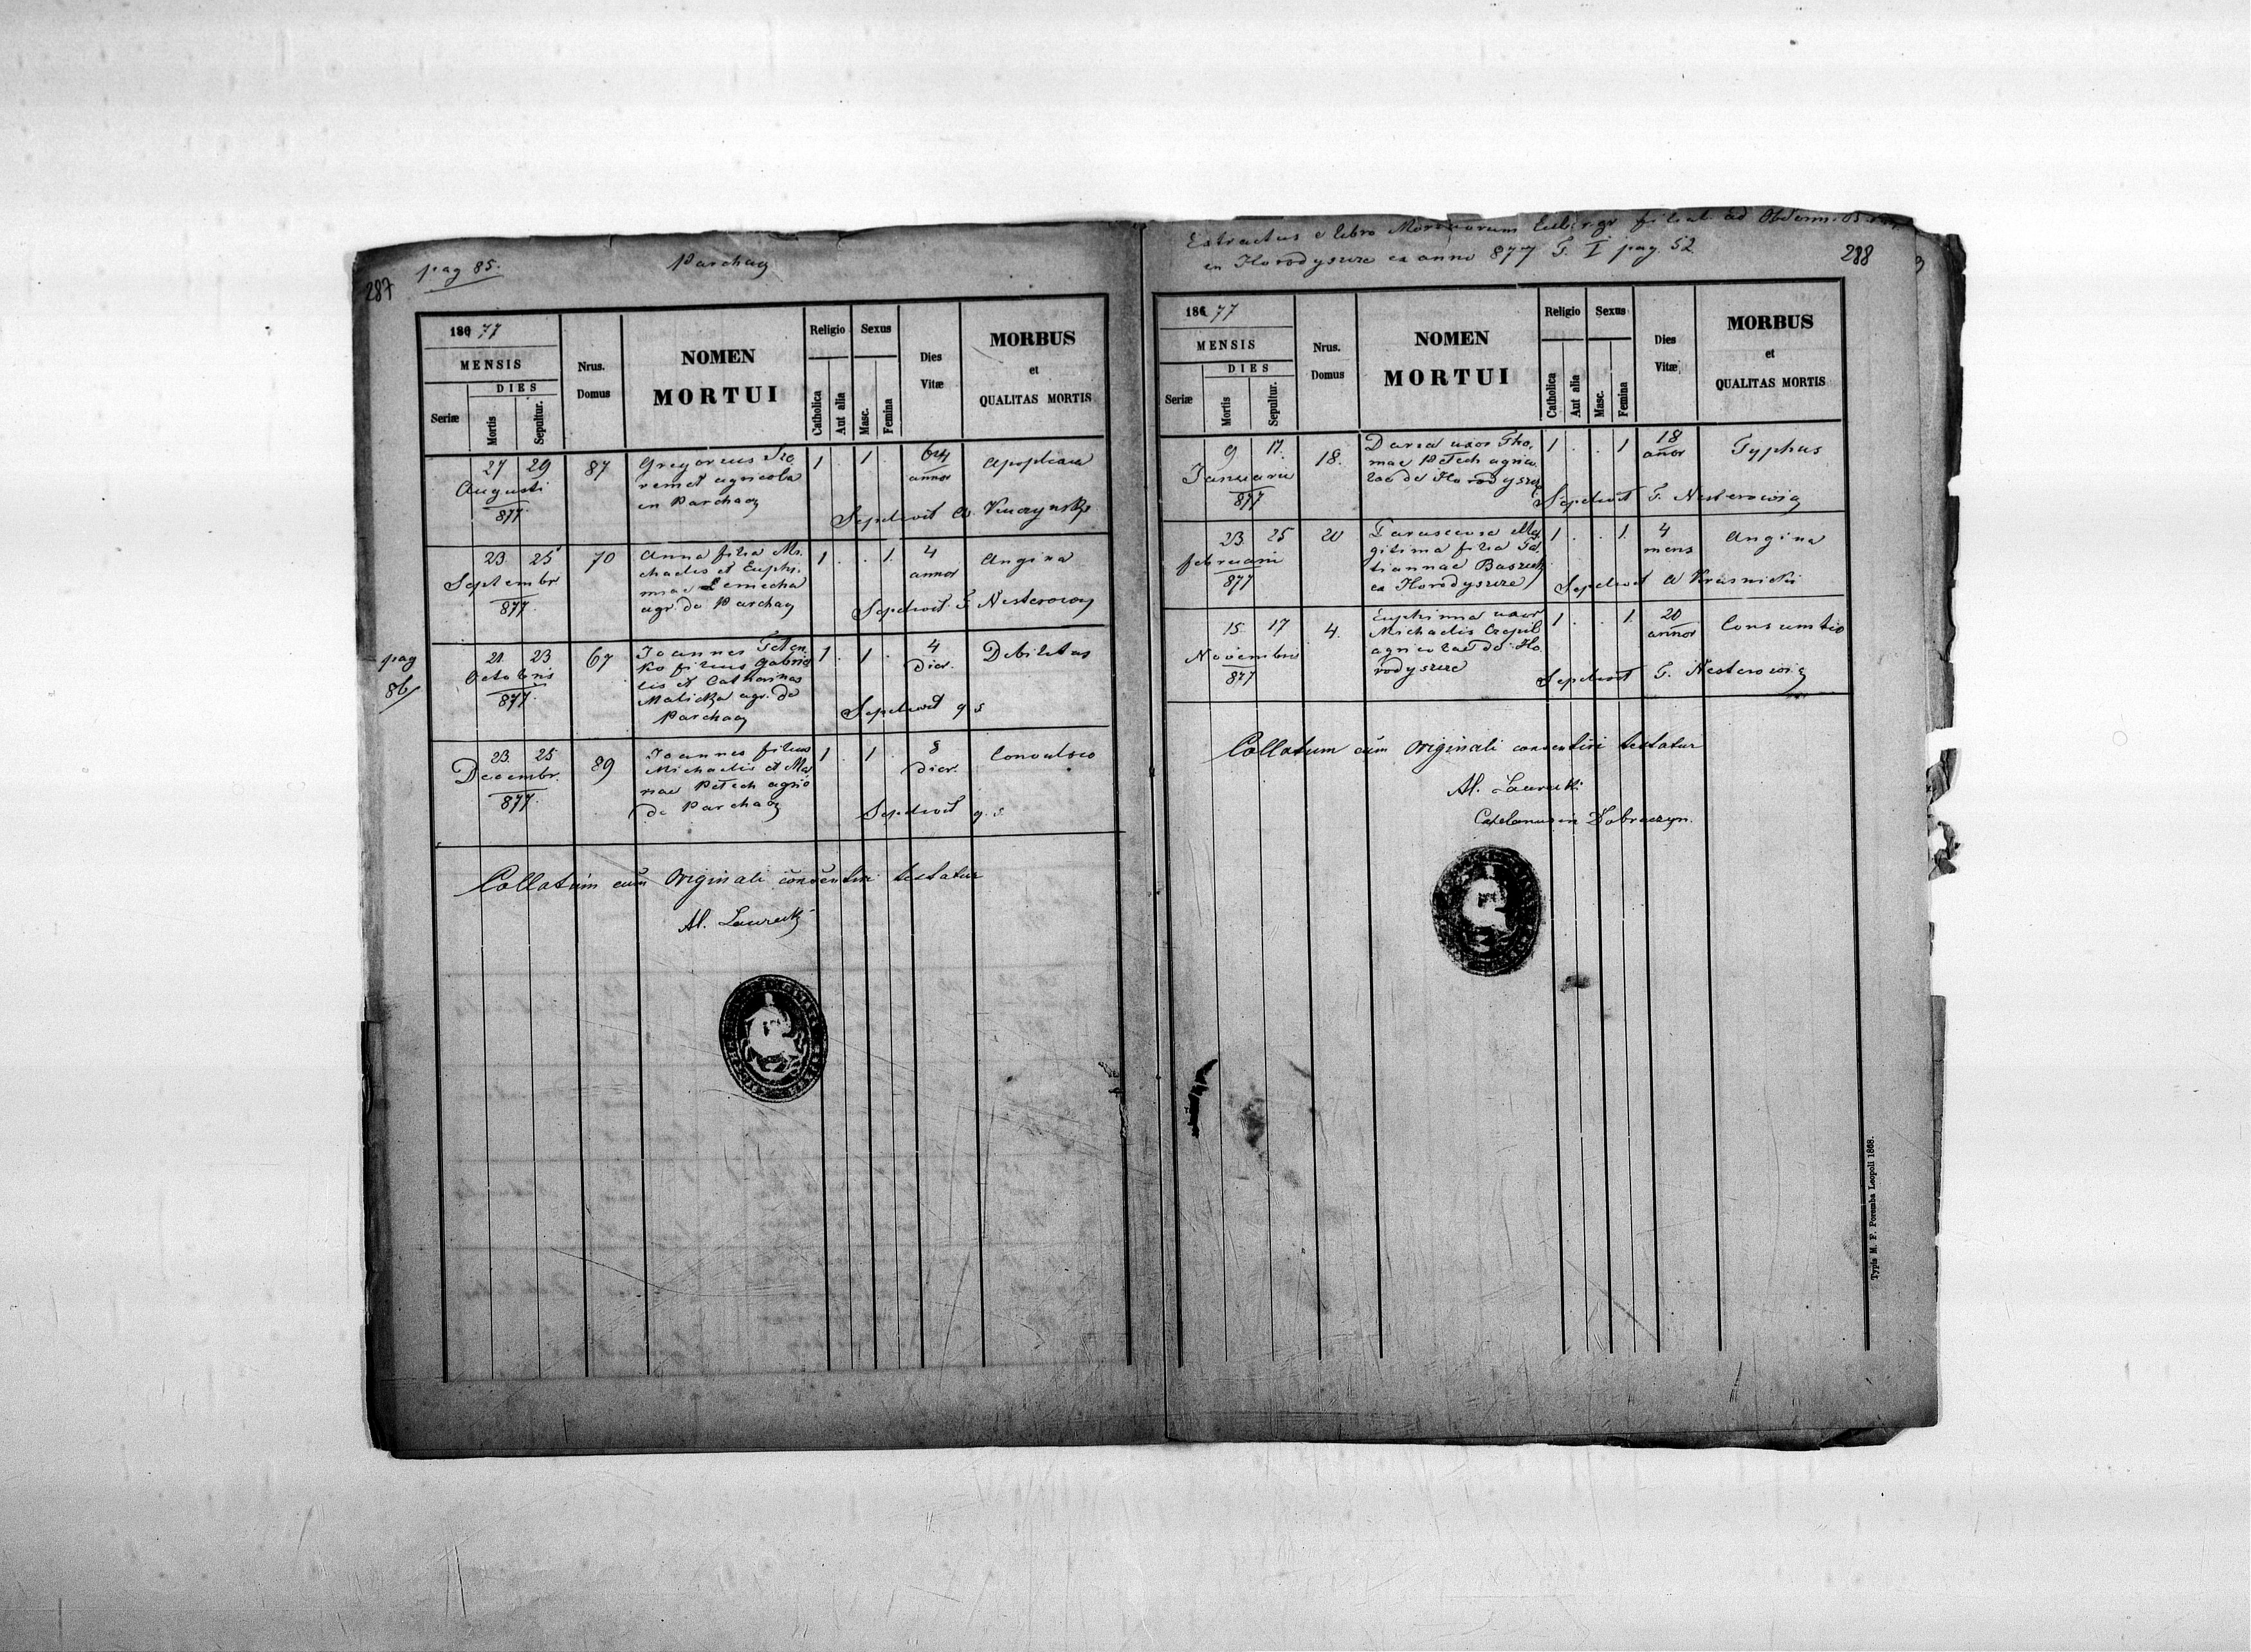 287
pag 85.
Parchacz
1867 77
MENSIS
DIES
Seriæ
Mortis
Sepultur.
Nrus.
Domus
NOMEN
MORTUI
Religio
Catholica
Aut alia
Sexus
Masc.
Femina
Dies
Vitæ
MORBUS
et
QUALITAS MORTIS
27 29 87 Gregorius 1 . 1 . 64 Apoplexia
Augusti annor
877
agricola
in Parchacz
Sepelivit
23. 25 70 Anna filia Mi- 1 . . 1. 4 Angina
Septembr annor
877.
chaelis et Euphi-
miae Lemecha
agr. de Parchacz
Sepelivit T. Nesterowicz
pag
86
21. 23 67 Joannes Teten- 1 . 1 . 4 Debilitas
Octobris dier.
877.
ko filius Gabrie
lis et Catharinae
Malicka agr. de
Parchacz
Sepelivit q s
23. 25 89 Joannes filius 1 . 1 . 8 Convulsio
Decembr. dier.
877.
Michaelis et Ma
riae Petech agric
de Parchacz
Sepelivit q. s
Collatum cum Originali consentiri testatur
Al. Laurecki
Extractus e libro Mortuorum filial. ad
in Horodyszcze ex anno 877 T. I pag. 52
288
186 77
MENSIS
DIES
Seriæ
Mortis
Sepultur.
Nrus.
Domus
NOMEN
MORTUI
Religio
Catholica
Aut alia
Sexus
Masc.
Femina
Dies
Vitæ
MORBUS
et
QUALITAS MORTIS
9 11. 18. Daria uxor Tho- 1 . . 1 18 Typhus
Januarii annor
877
mae Petech agrico-
lae de Horodyszcze
Sepelivit T. Nesterowicz
23. 25 20 Parasceva 1 . . 1. 4 Angina
februarii mens
877
gitima filia Ta-
tiannae
ex Horodyszcze
Sepelivit A Krasnicki
15. 17 4. Euphimia uxor 1 . . 1. 20 Consumtio
Novembris annor
877
Michaelis Czepil
agricolae de Ho
rodyszcze
Sepelivit T. Nesterowicz
Collatum cum Originali consentiri testatur
Al. Laurecki
Capelanus in Dobraczyn.
Typis M. F. Poremba Leopoli 1868.